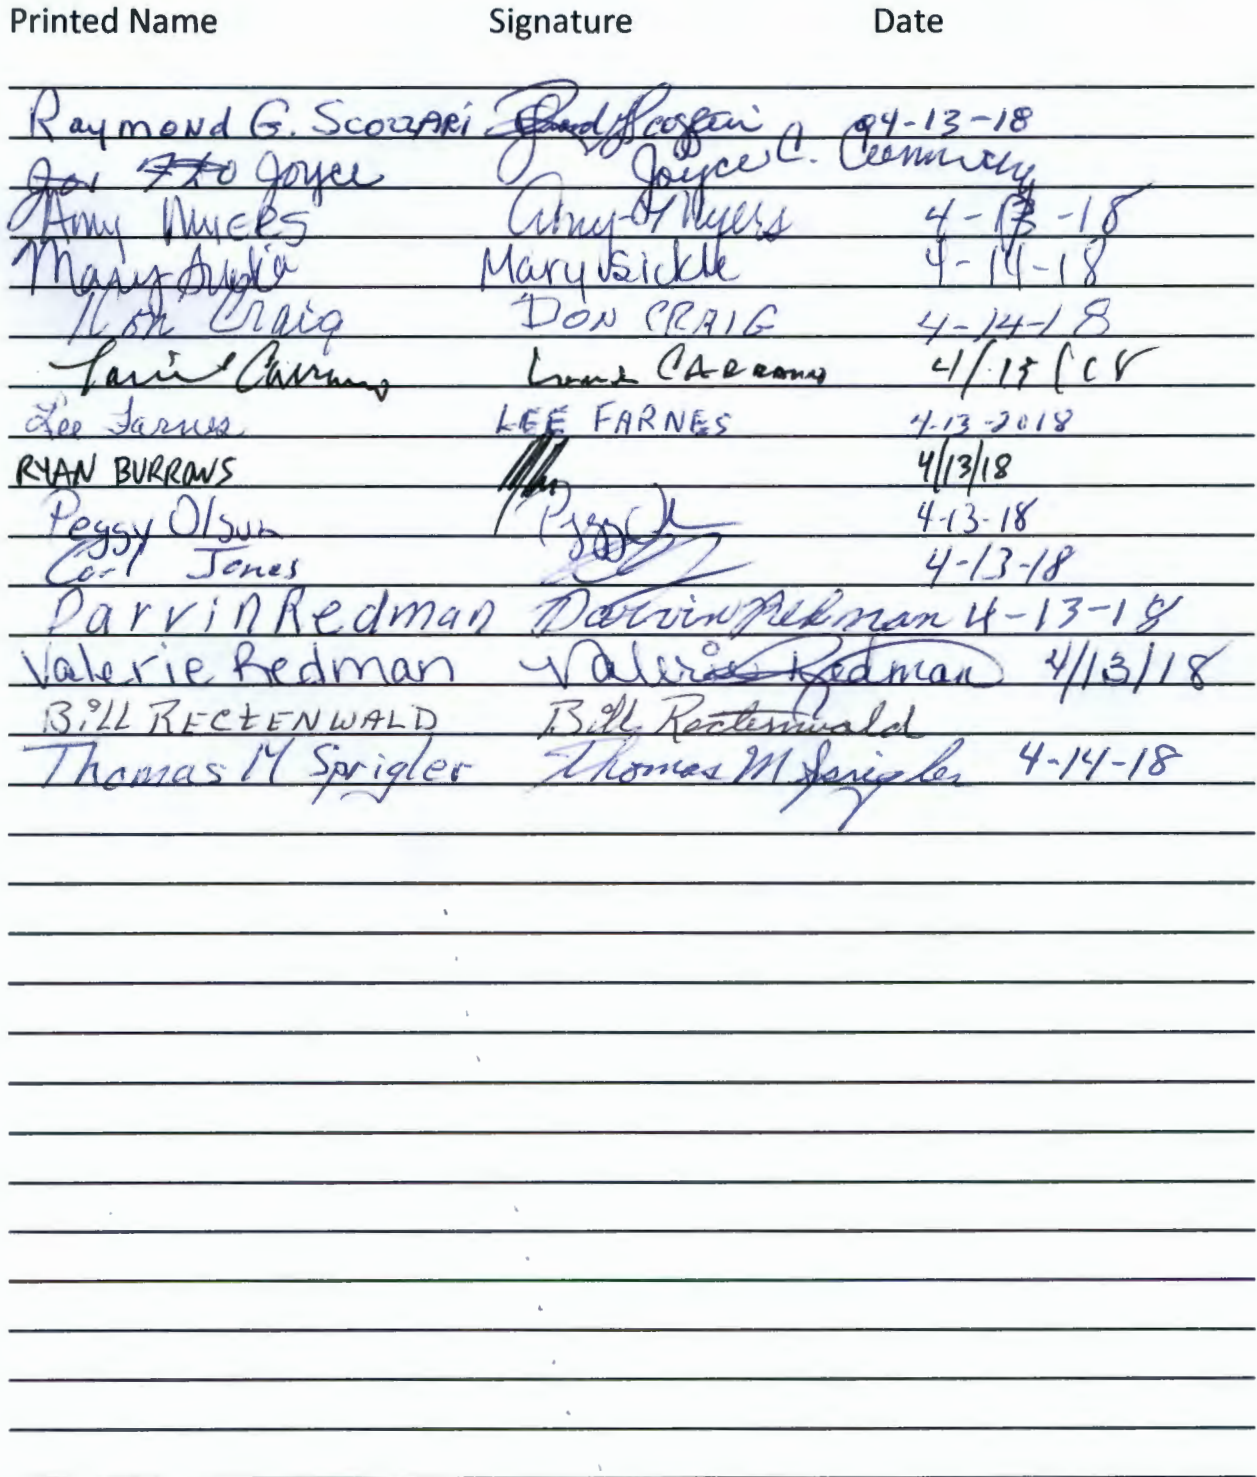 Printed Name Signature Date
Raymond G. Scozzari 04-13-18
Joyce Joyce C.
Amy Myers Amy Myers 4-13-18
Mary Mary Sickle 4-14-18
Don Craig DON CRAIG 4-14-18
CARRANO
Lee Farnes LEE FARNES 4-13-2018
RYAN BURROWS 4/13/18
Peggy Olsun 4-13-18
Carl Jones 4-13-18
Darvin Redman Darvin Redman 4-13-18
Valerie Redman Valerie Redman 4/13/18
Bill RECTENWALD Bill Rectenwald
Thomas M Sprigler Thomas M Sprigler 4-14-18